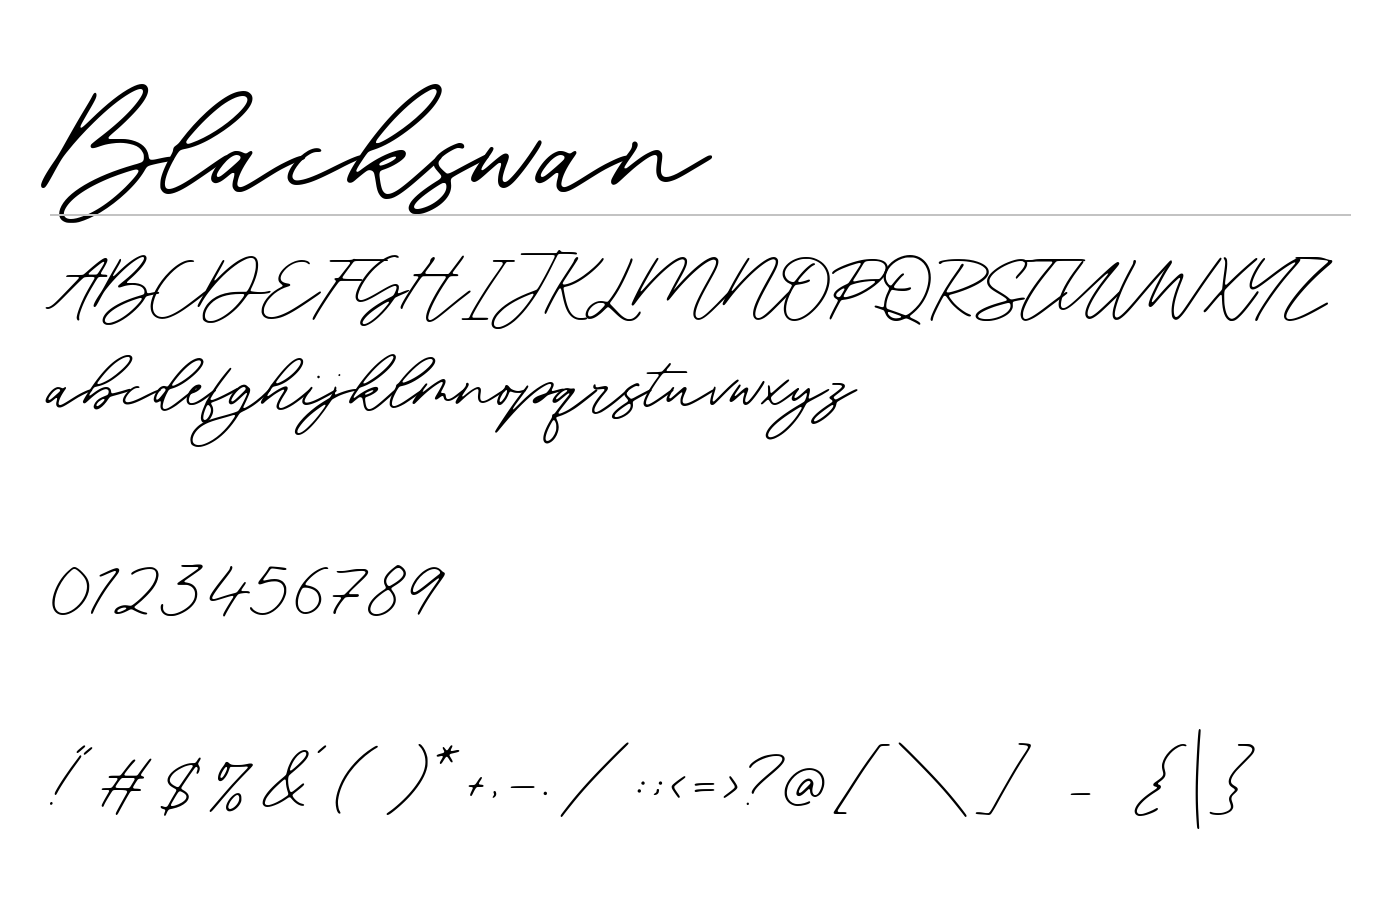 Blackswan
ABCDEFGHIJKLMNOPQRSTUVWXYZ
abcdefghijklmnopqrstuvwxyz
0123456789
!"#$%&'()*+,-./:;<=>?@[\]_{|}